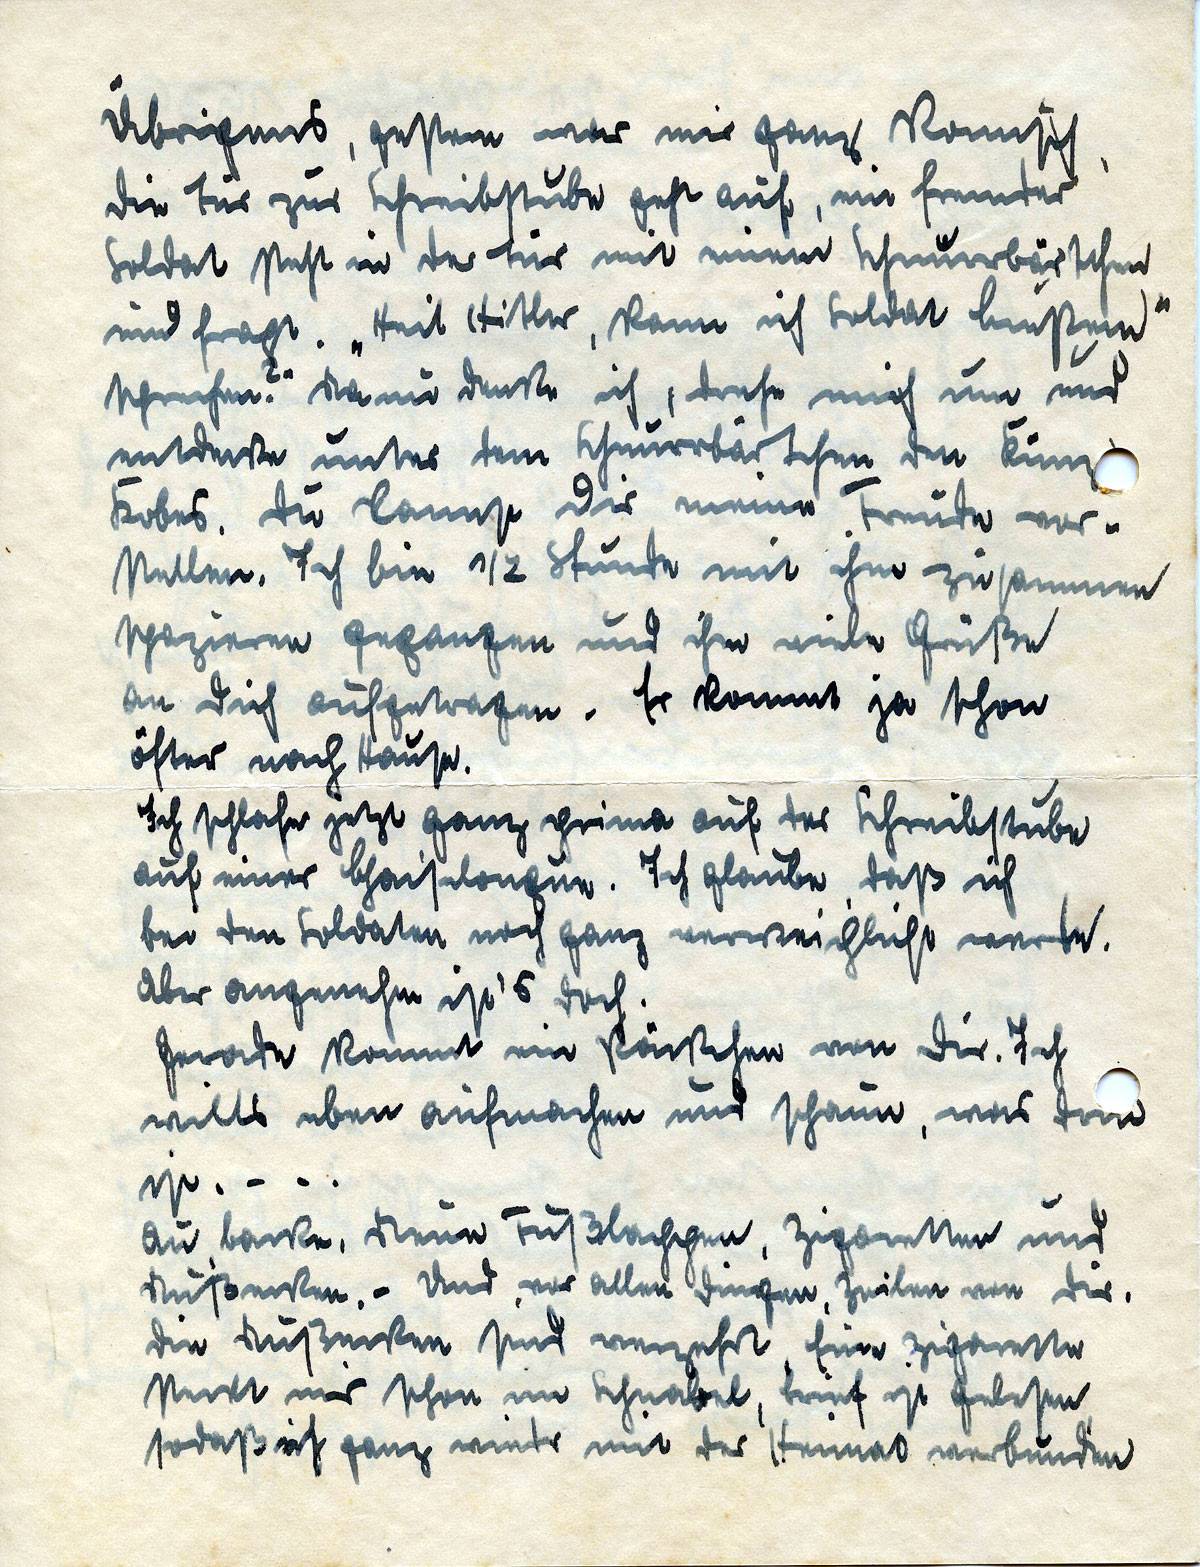 Übrigens, gestern war mir ganz komisch,
die Tür zur Schreibstube geht auf, ein fremder
Soldat steht in der Tür mit einem Schnurrbärtchen
und fragt. „Heil Hitler, kann ich Soldat
sprechen?" Nanu denke ich, drehe mich um und
entdecke unter dem Schnurrbärtchen den
Kobes. Du kannst Dir meine Freude vor-
stellen. Ich bin 1/2 Stunde mit ihm zusammen
spazieren gegangen und ihm viele Grüße
an Dich aufgetragen. Er kommt ja schon
öfter nach Hause.
Ich schlafe jetzt ganz prima auf der Schreibstube
auf einer Chaiselongue. Ich glaube, daß ich
bei den Soldaten noch ganz verweichlicht werde.
Aber angenehm ist's doch.
Gerade kommt ein Päckchen von Dir. Ich
will's eben aufmachen und schaun, was drin
ist. - - . .
Au, backe. Neue Fußlappen, Zigaretten und
Nußecken. - Und, vor allen Dingen, Zeilen von Dir.
Die Nußecken sind verzehrt, Eine Zigarette
steckt mir schon im Schnabel, Brief ist gelesen,
sodaß ich ganz wieder mit der Heimat verbunden